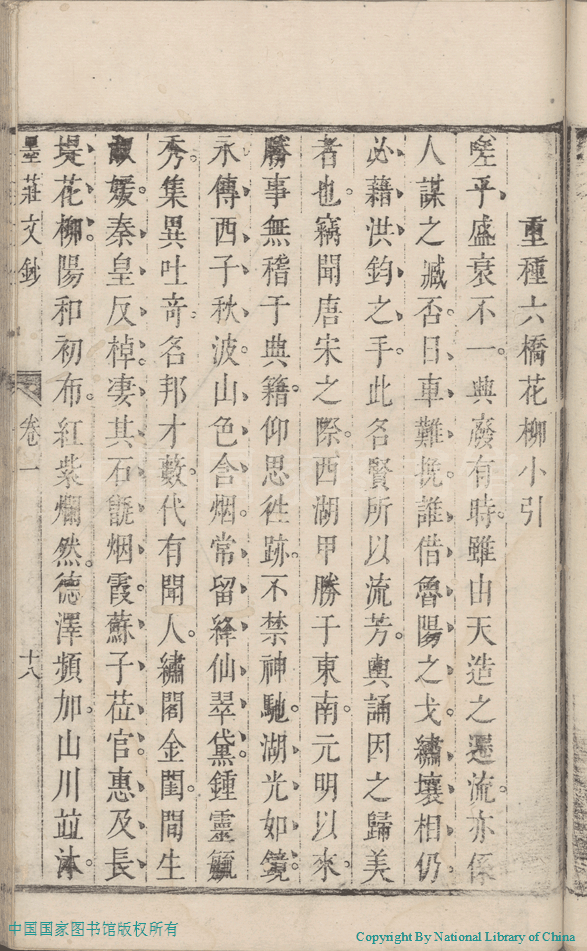 重種六橋花柳小引
嗟乎盛衰不一興廢有時雖山天造之遷流亦係
人謀之臧否日車難挽誰借魯陽之戈繡壤相仍
必藉洪鈞之手此名賢所以流芳輿誦因之歸美
者也竊聞唐宋之際西湖甲勝于東南元明以來
勝事無稽于典籍仰思徃跡不禁神馳湖光如鏡
永傳西子秋波山色含烟常留絳仙翠黛鍾靈毓
秀集異吐竒名邦才藪代有聞人繡閣金閨間生
淑媛秦皇反棹凄其石甃烟霞蘇子莅官惠及長
堤花柳陽和初布紅紫爛然德澤頻加山川竝沐
墨莊文鈔
卷一
十八
中国国家图书馆版权所有
Copyright By National Library of China